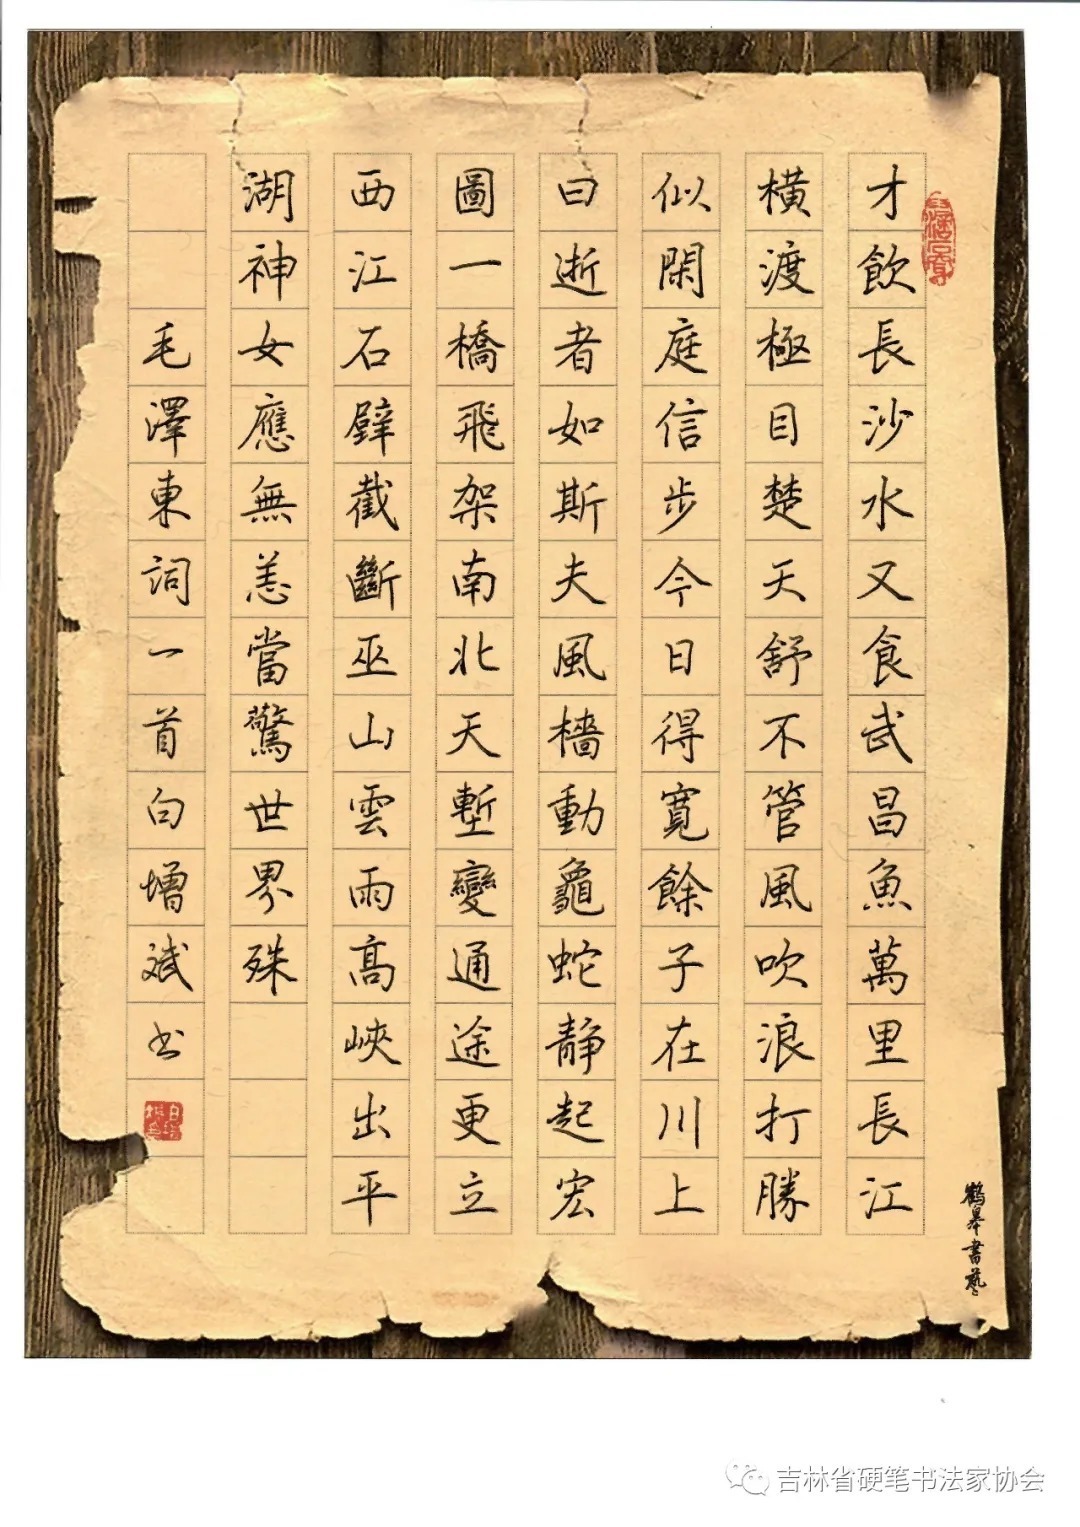 才飲長沙水又食武昌魚萬里長江
橫渡極目楚天舒不管風吹浪打勝
似閑庭信步今日得寬餘子在川上
曰逝者如斯夫風檣動龜蛇靜起宏
圖一橋飛架南北天塹變通途更立
西江石壁截斷巫山雲雨高峽出平
湖神女應無恙當驚世界殊
毛澤東詞一首白增斌书
鶴皋書藝
吉林省硬笔书法家协会